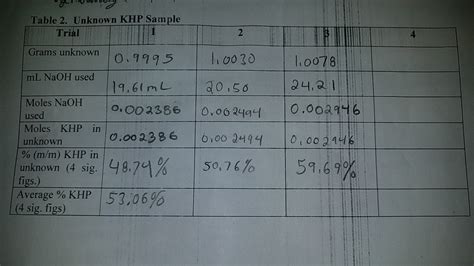 Table 2. Unknown KHP Sample
Trial 1 2 3 4
Grams unknown 0.9995 1.0030 1.0078
mL NaOH used 19.61mL 20.50 24.21
Moles NaOH used 0.002386 0.002494 0.002946
Moles KHP in unknown 0.002386 0.002494 0.002946
% (m/m) KHP in unknown (4 sig. figs.) 48.74% 50.76% 59.69%
Average % KHP (4 sig. figs) 53.06%